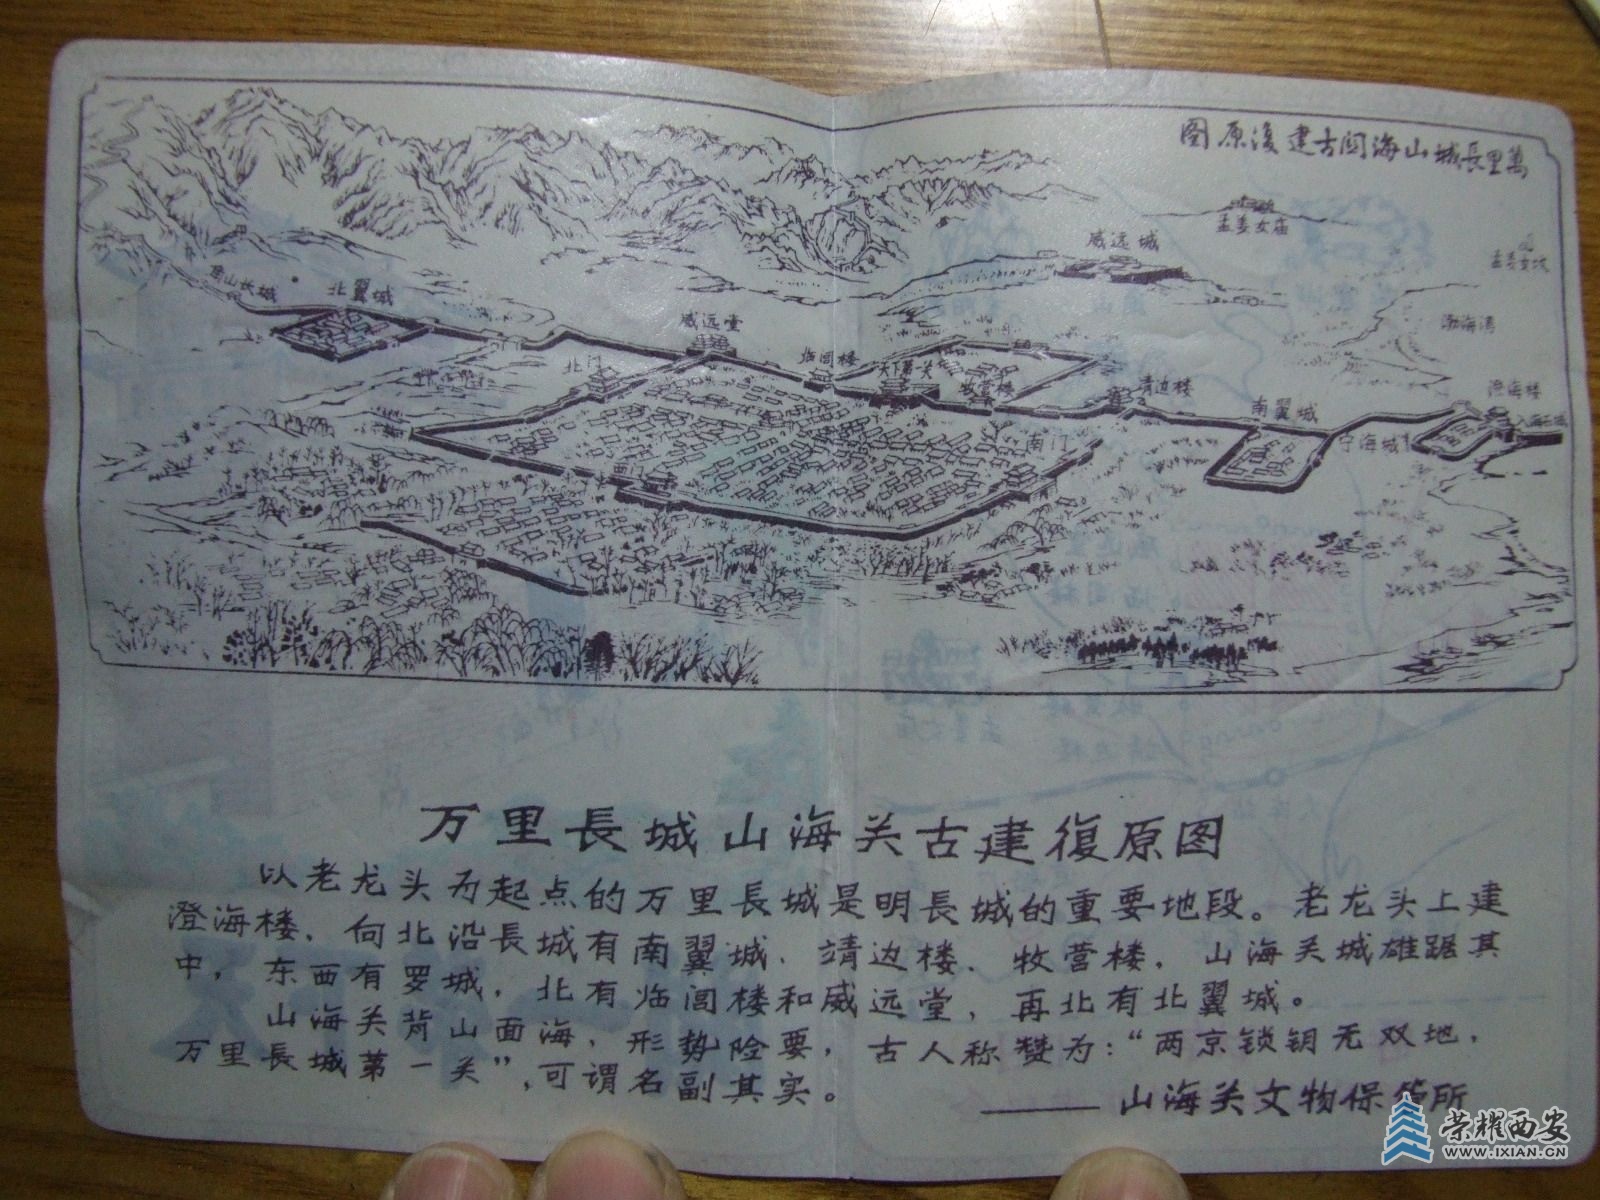 萬里長城山海関古建復原图
孟姜女庙
威远城
孟姜女坟
角山长城
北翼城
渤海湾
威远堂
临闾楼
北门
天下第一关
牧营楼
靖边楼
南翼城
澄海楼
入海石城
宁海城
南门
西门
万里長城山海关古建復原图
以老龙头为起点的万里長城是明長城的重要地段。老龙头上建
澄海楼、向北沿長城有南翼城、靖边楼、牧营楼，山海关城雄踞其
中，东西有罗城，北有临闾楼和威远堂，再北有北翼城。
山海关背山面海，形势险要，古人称赞为：“两京锁钥无双地，
万里長城第一关”，可谓名副其实。
——山海关文物保管所
荣耀西安
WWW.IXIAN.CN